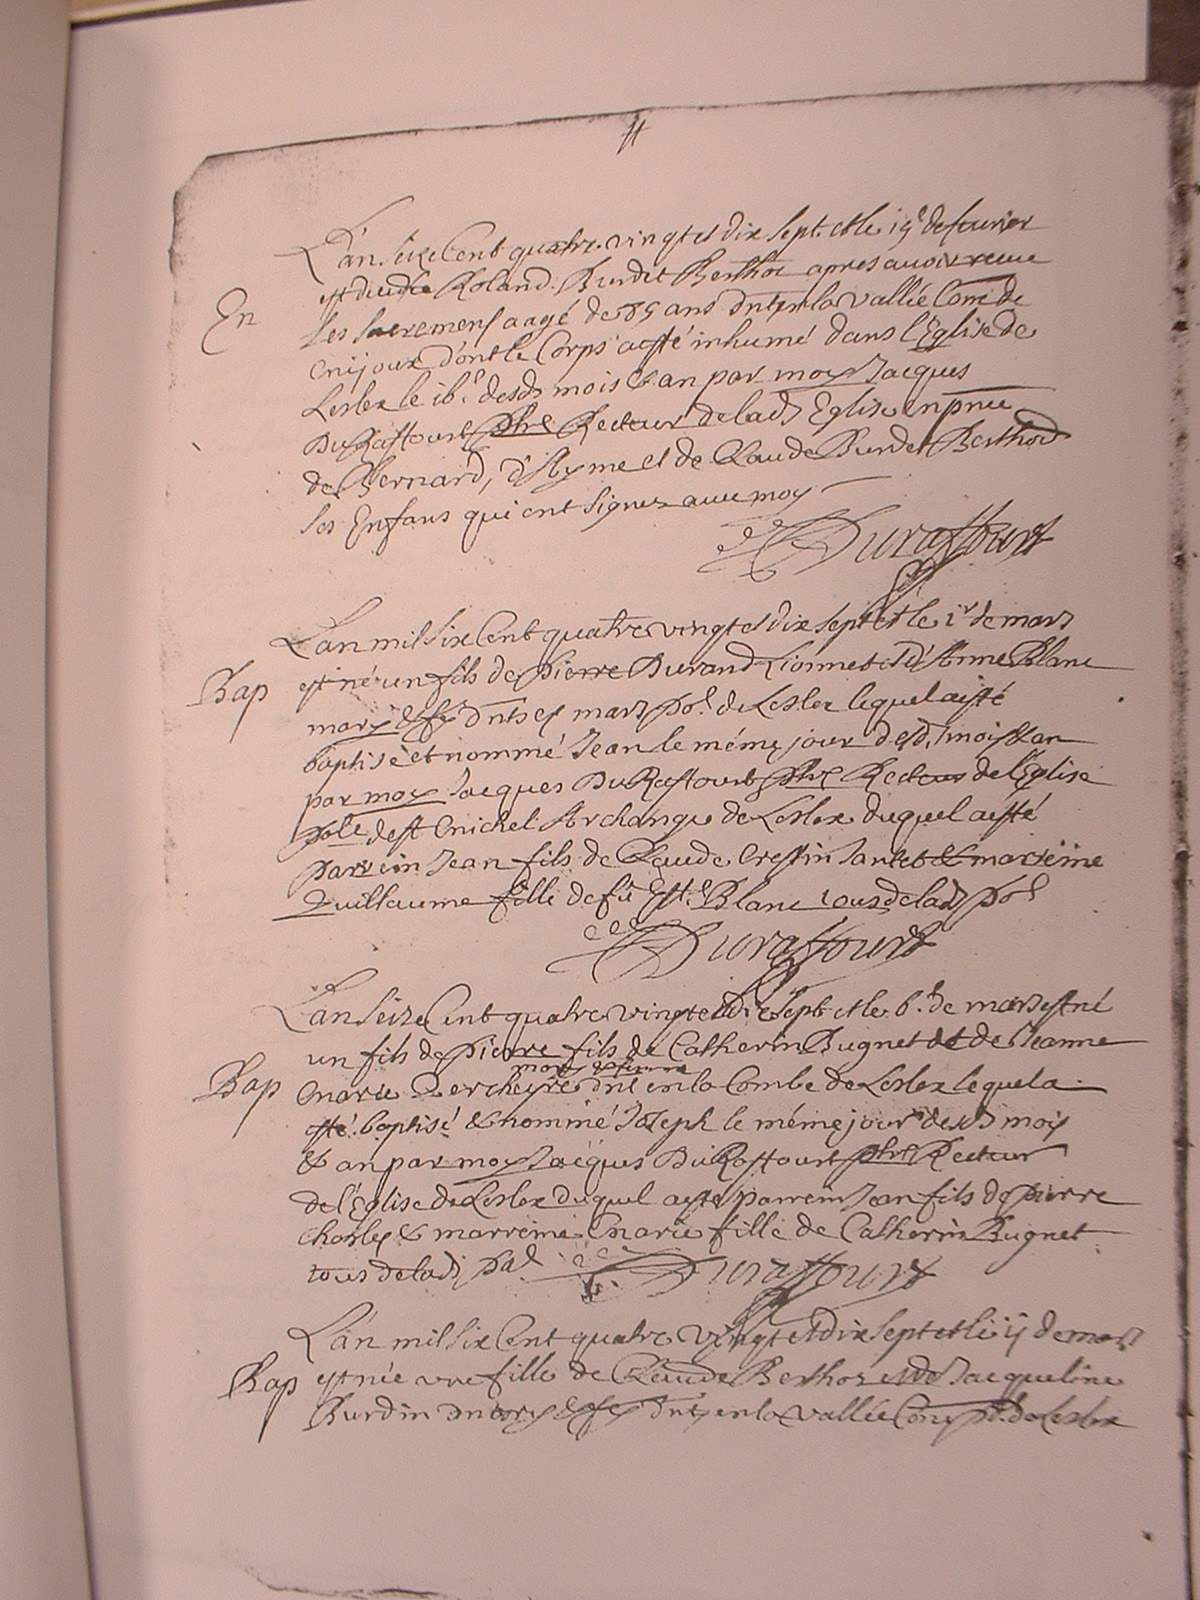 L'an Seize Cent quatre vingt et dix sept et le 15e de feurier
En
est decedé Roland Burdet Berthod apres auoir receu
Les Sacremens aagé de 85 ans dnt en la vallée Come de
Cnijoux dont le Corps a esté inhumé dans l'Eglise de
Lesler le 16e desd mois & an par moy Jacques
DuRaffourt ptre Recteur de lad Eglise en pnce
de Bernard, d'Ayme et de Claude Burdet Berthod
ses Enfans qui ont signez auec moy
Duraffourt
L'an mil Six Cent quatre vingt et dix sept et le 1r de mars
Bap
est né un fils de Pierre Durand Lionnet et d'Anne Blanc
marz & fe dnts es marz po de Lesler lequel a esté
baptisé et nommé Jean le méme jour desd mois & an
par moy Jacques DuRaffourt ptre Recteur de l'Eglise
plle de st Michel Archange de Lesler duquel a esté
parrein Jean fils de Claude Crestin Jantet & marreine
Guillaume fille de fû Blanc tous de lad po
Duraffourt
L'an Seize Cent quatre vingt et dix sept et le 6e de mars est né
un fils de Pierre fils de Catherin Bugnet et de Jeanne
mary & femme
Bap
Marie Percheyre dnt en la Combe de Lesler lequel a
esté baptisé & nommé Joseph le méme jour desd mois
& an par moy Jacques DuRaffourt ptre Recteur
de l'Eglise de Lesler duquel a esté parrein Jean fils de pierre
Charles & marreine Marie fille de Catherin Bugnet
tous de lad pal
Duraffourt
L'an mil six Cent quatre vingt et dix sept et le ij de mars
Bap
est née vne fille de Claude Berthod et de Jacqueline
Burdin dnt en la vallée Come po de Lesler